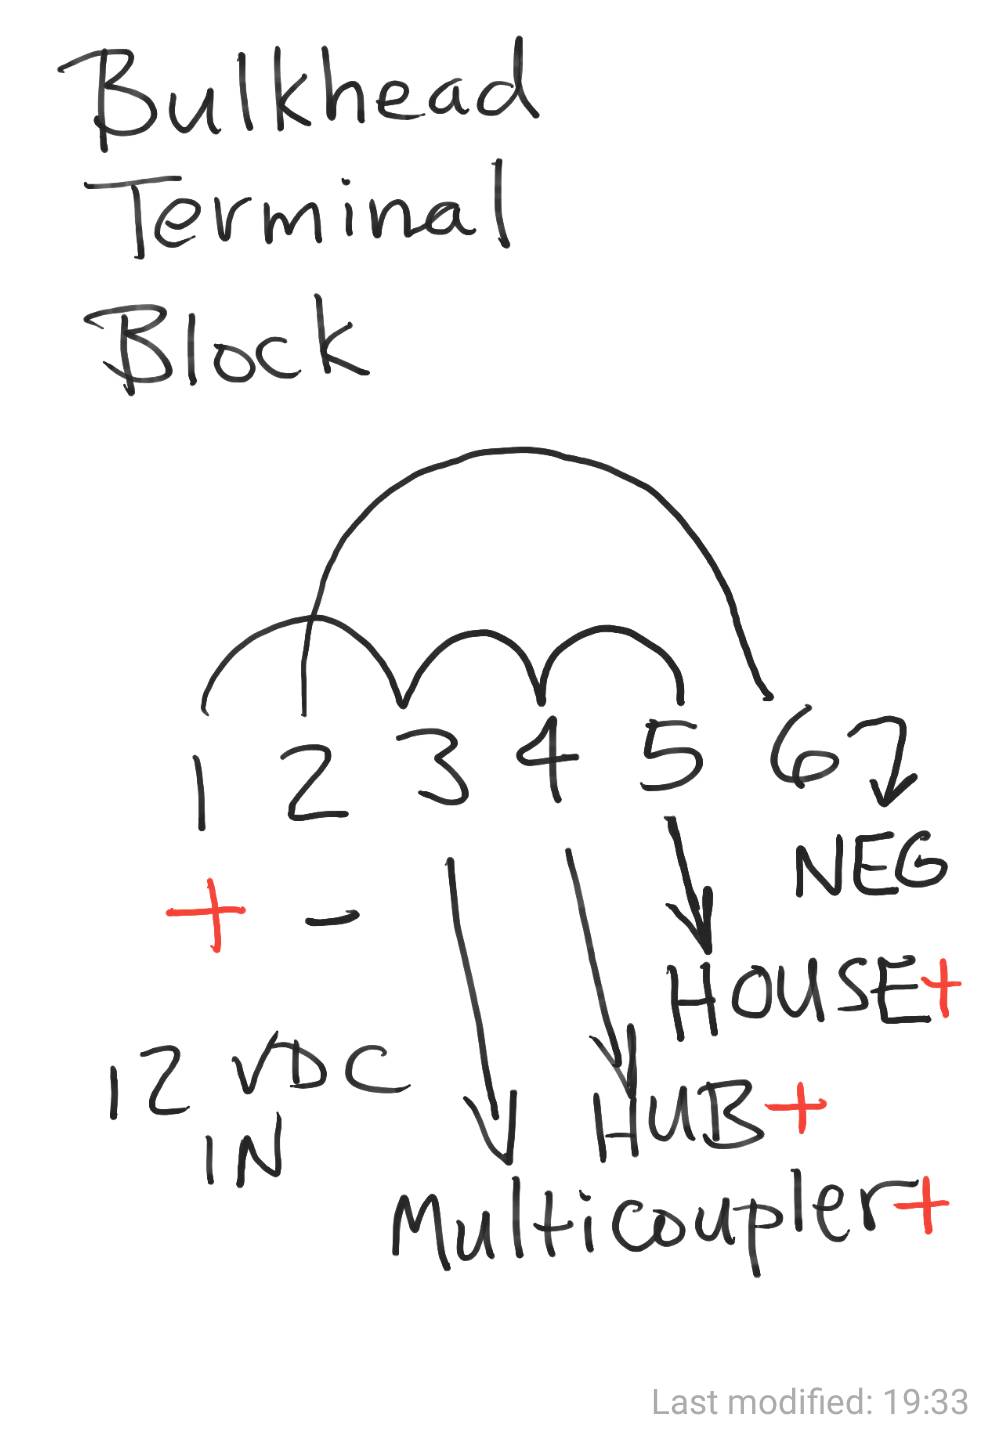 Bulkhead
Terminal
Block
1 2 3 4 5 6
+ -
NEG
HOUSE+
12 VDC
IN
HUB+
Multicoupler+
Last modified: 19:33